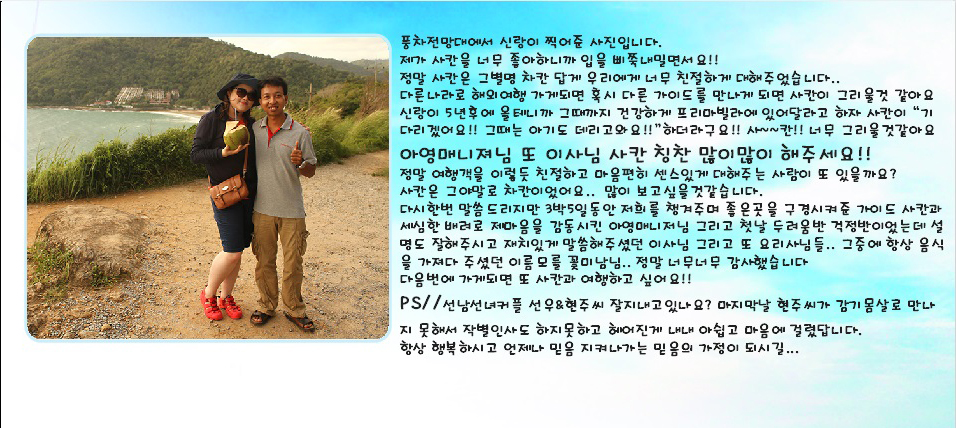 풍차전망대에서 신랑이 찍어준 사진입니다.
제가 사칸을 너무 좋아하니까 입을 삐쭉내밀면서요!!
정말 사칸은 그별명 차칸 답게 우리에게 너무 친절하게 대해주었습니다..
다른나라로 해외여행 가게되면 혹시 다른 가이드를 만나게 되면 사칸이 그리울것 같아요
신랑이 5년후에 올테니까 그때까지 건강하게 프리마빌라에 있어달라고 하자 사칸이 “기
다리겠어요!! 그때는 아기도 데리고와요!!”하더라구요!! 사~~칸!! 너무 그리울것같아요
아영매니져님 또 이사님 사칸 칭찬 많이많이 해주세요!!
정말 여행객을 이렇듯 친절하고 마음편히 센스있게 대해주는 사람이 또 있을까요?
사칸은 그야말로 차칸이었어요.. 많이 보고싶을것같습니다.
다시한번 말씀드리지만 3박5일동안 저희를 챙겨주며 좋은곳을 구경시켜준 가이드 사칸과
세심한 배려로 제마음을 감동시킨 아영매니져님 그리고 첫날 두려움반 걱정반이었는데 설
명도 잘해주시고 재치있게 말씀해주셨던 이사님 그리고 또 요리사님들.. 그중에 항상 음식
을 가져다 주셨던 이름모를 꽃미남님.. 정말 너무너무 감사했습니다
다음번에 가게되면 또 사칸과 여행하고 싶어요!!
PS//선남선녀커플 선우&현주씨 잘지내고있나요? 마지막날 현주씨가 감기몸살로 만나
지 못해서 작별인사도 하지못하고 헤어진게 내내 아쉽고 마음에 걸렸답니다.
항상 행복하시고 언제나 믿음 지켜나가는 믿음의 가정이 되시길...